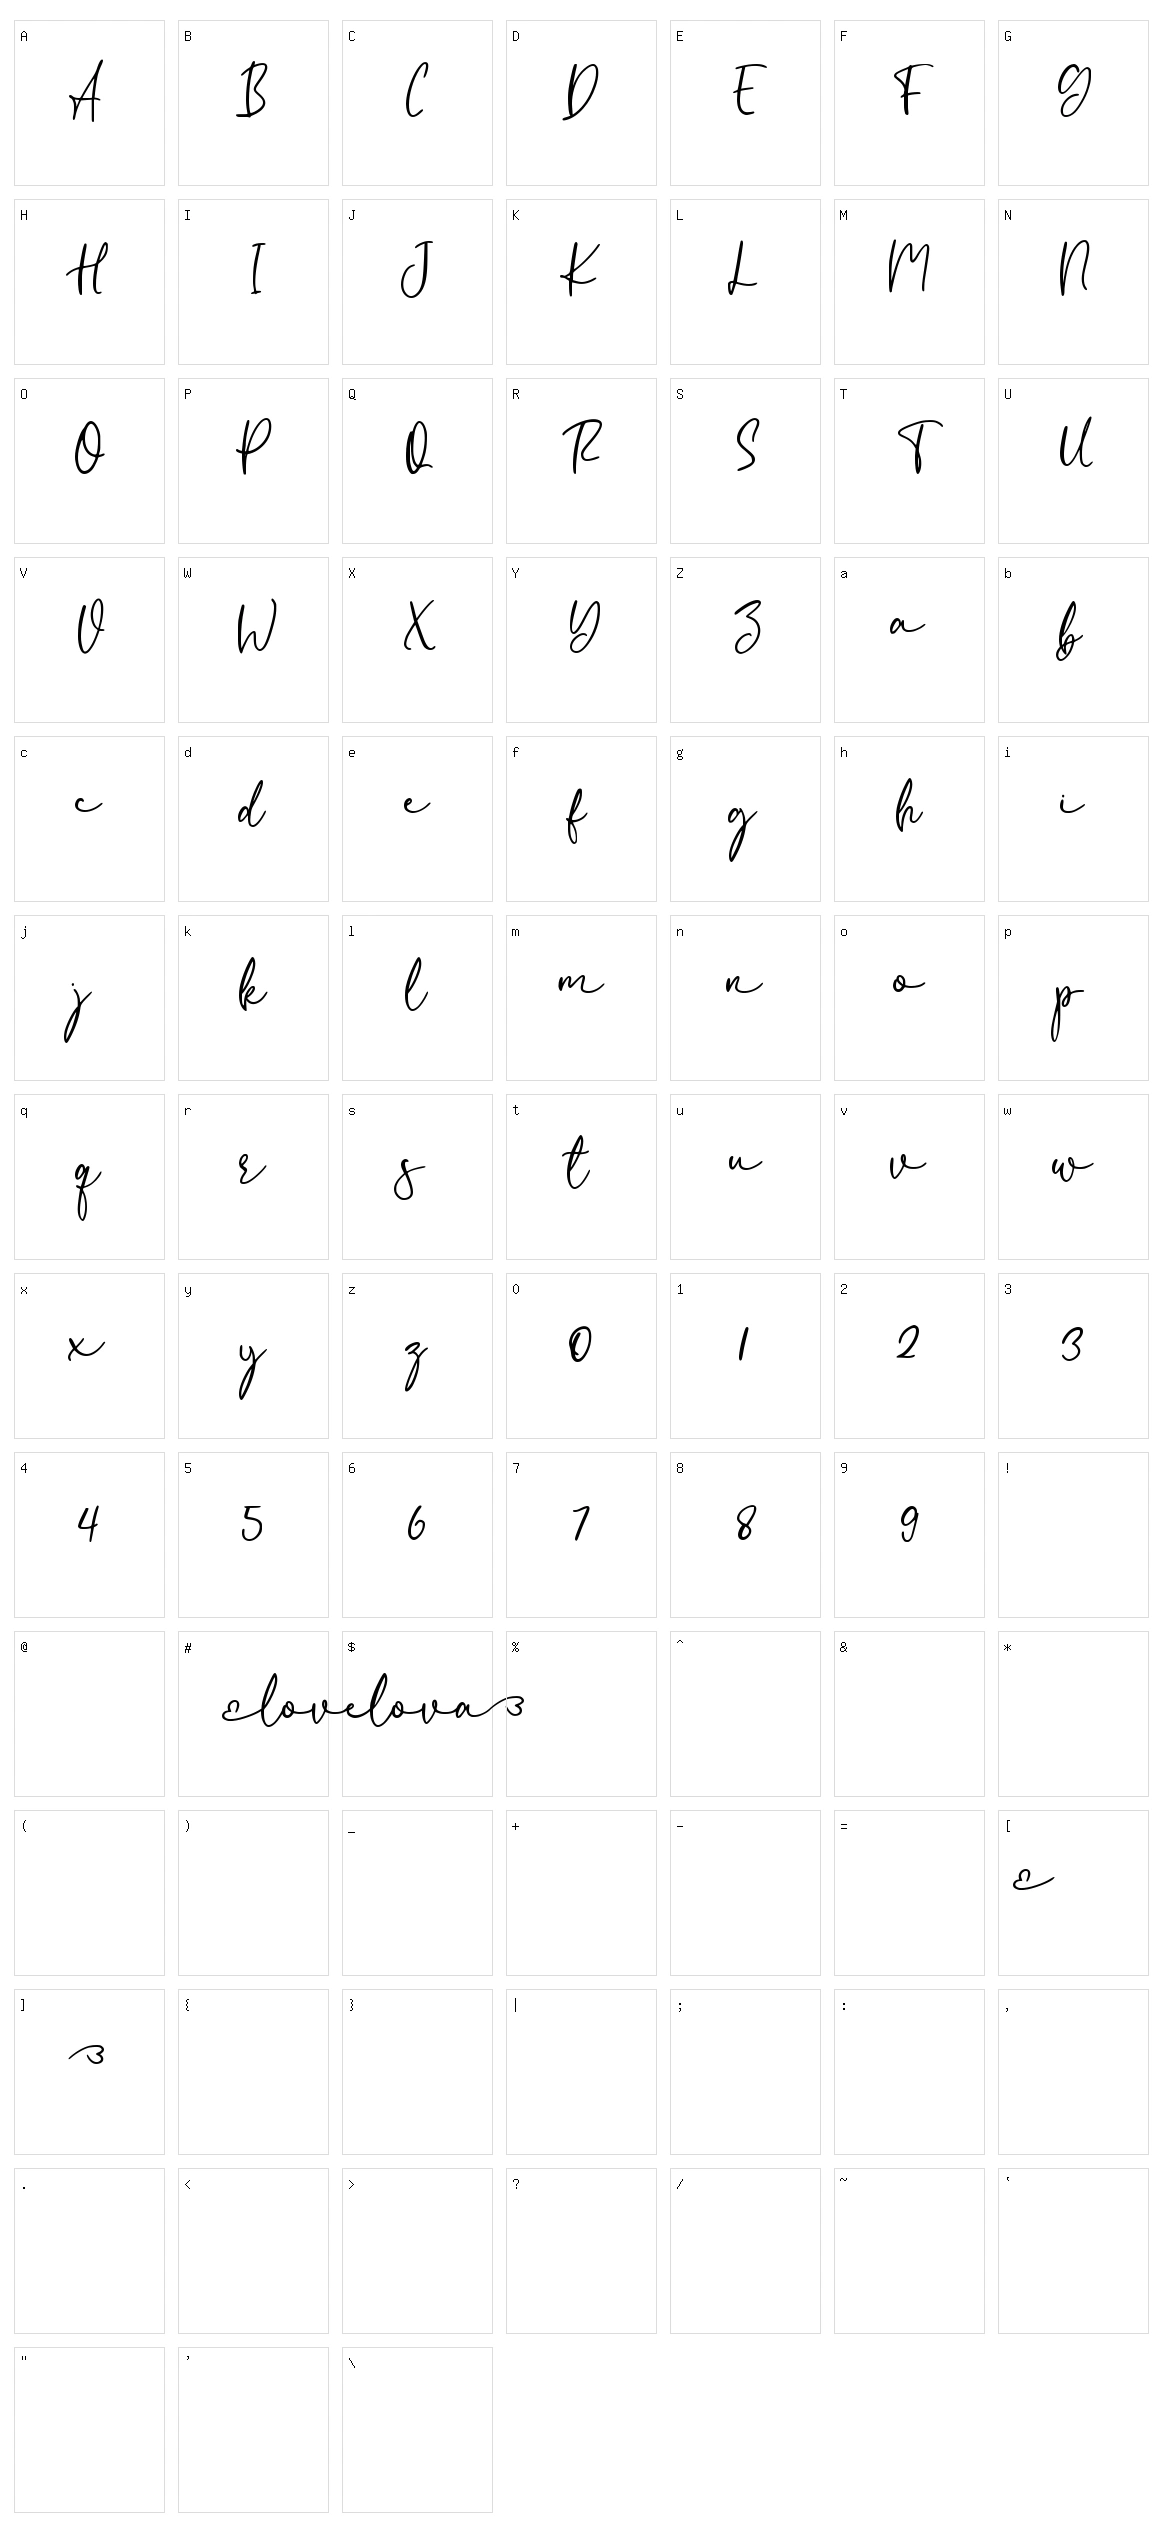 A B C D E F G
A B C D E F G
H I J K L M N
H I J K L M N
O P Q R S T U
O P Q R S T U
V W X Y Z a b
V W X Y Z a b
c d e f g h i
c d e f g h i
j k l m n o p
j k l m n o p
q r s t u v w
q r s t u v w
x y z 0 1 2 3
x y z 0 1 2 3
4 5 6 7 8 9 !
4 5 6 7 8 9
@ # $ % ^ & *
lovelova
( ) _ + - = [
] { } | ; : ,
. < > ? / ~ `
" ' \